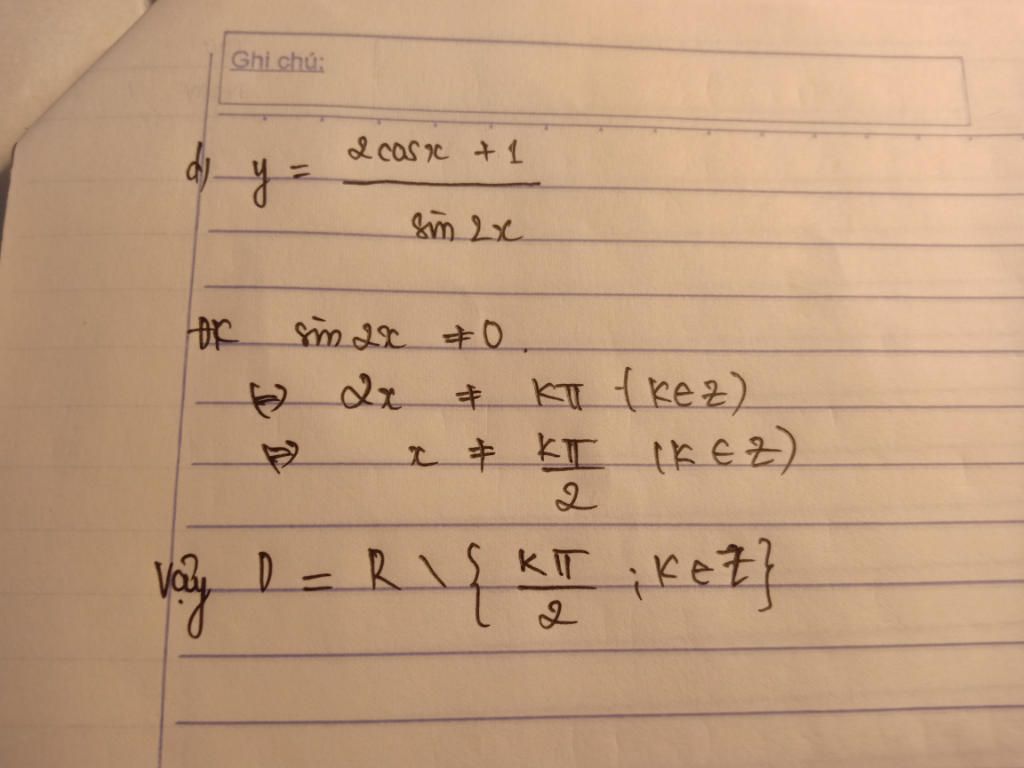 Ghi chú:
d) y = (2cosx + 1) / (sin 2x)
ĐK sin 2x ≠ 0.
⇔ 2x ≠ kπ (k∈Z)
⇔ x ≠ kπ/2 (k∈Z)
Vậy D = R \ { kπ/2 ; k∈Z}